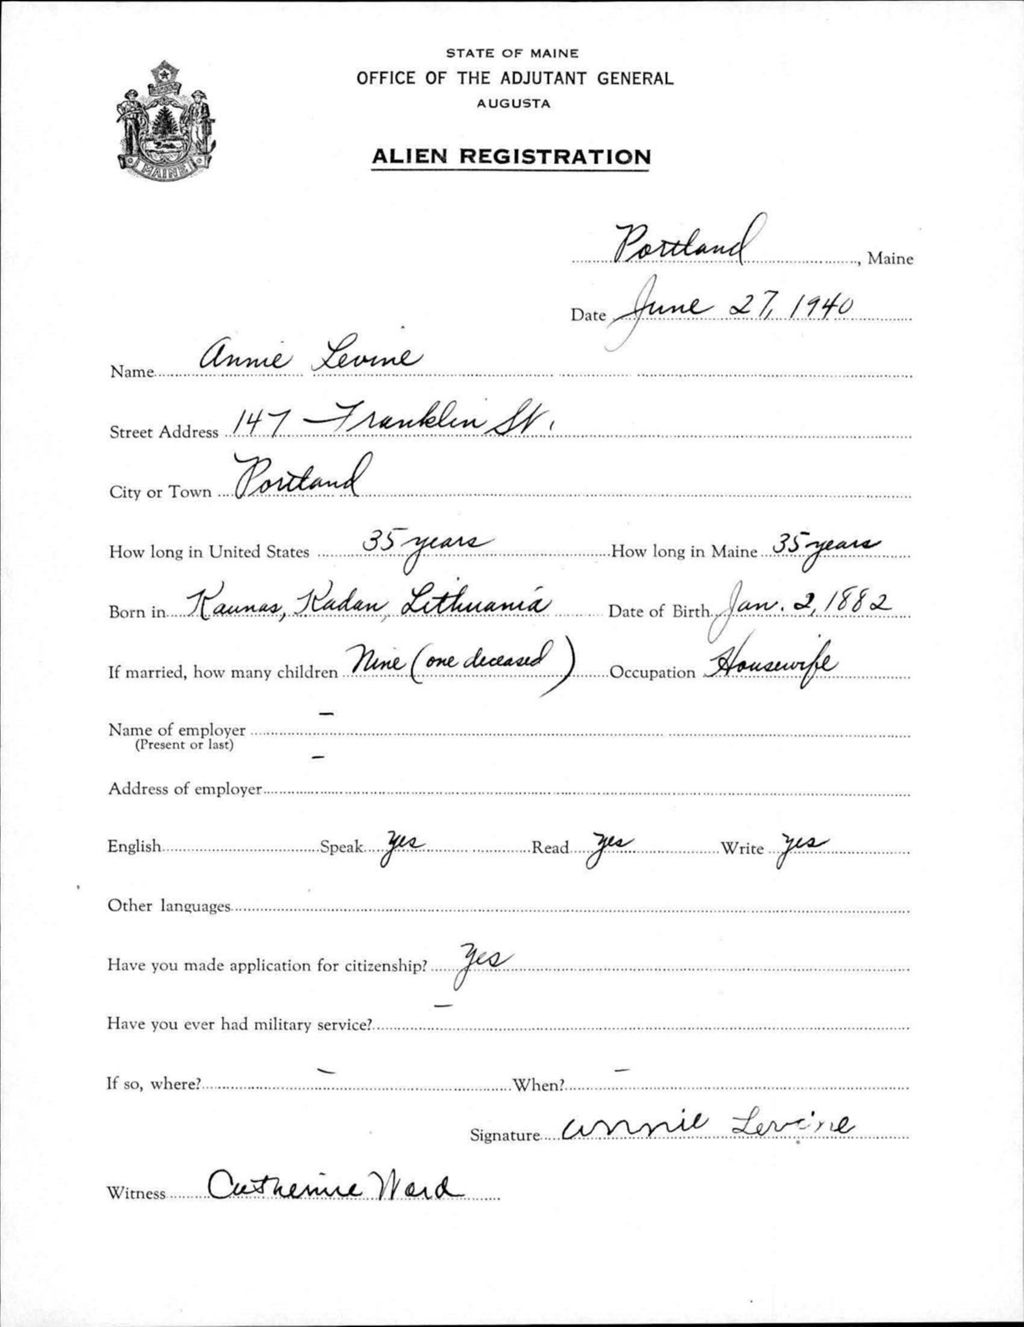 STATE OF MAINE
OFFICE OF THE ADJUTANT GENERAL
AUGUSTA
ALIEN REGISTRATION
MAINE
Portland, Maine
Date June 27, 1940
Name Annie Levine
Street Address 147 Franklin St.
City or Town Portland
How long in United States 35 years How long in Maine 35 years
Born in Kaunas, Kadan, Lithuania Date of Birth Jan. 2, 1882
If married, how many children Nine (one deceased) Occupation Housewife
Name of employer –
(Present or last)
Address of employer –
English Speak yes Read yes Write yes
Other languages
Have you made application for citizenship? Yes
Have you ever had military service? –
If so, where? – When? –
Signature Annie Levine
Witness Catherine Ward